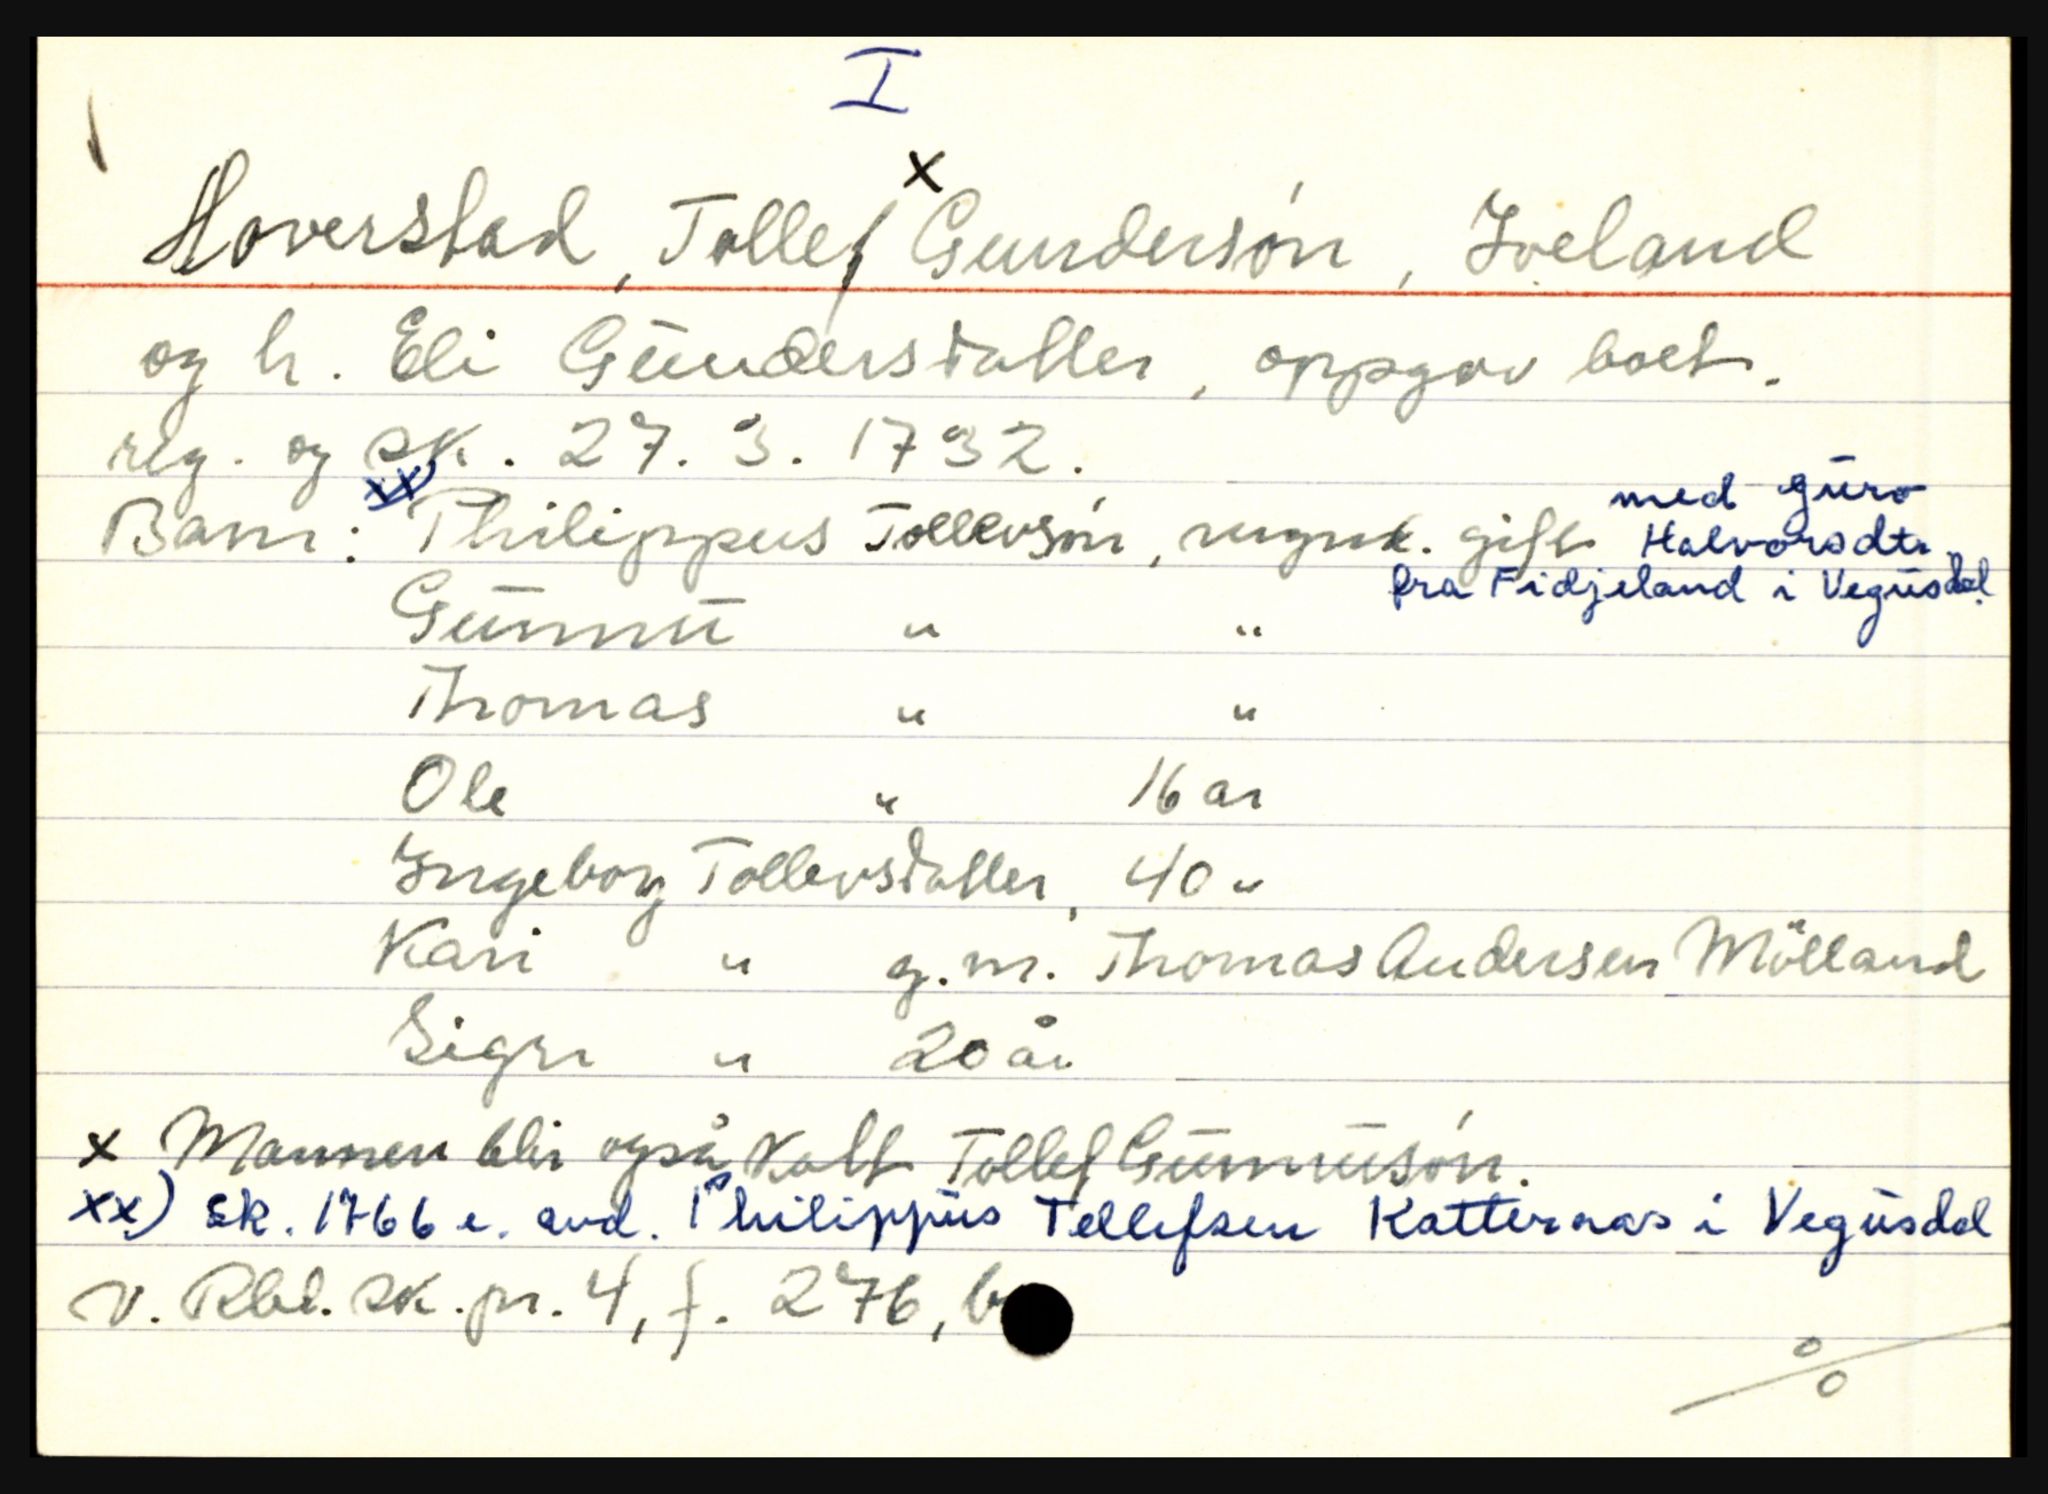 I
x
Hoverstad, Tollef Gundersón, Iveland
og h. Eli Gündersdatter, oppgav boet.
reg. og sk. 27. 3. 1732.
Barn: xx) Philippus Tollevsón, myndt. gift med Güro
Halvorsdtr.
fra Fidjeland i Vegüsdal.
Günnü " "
Thomas " "
Ole " 16 år
Ingeborg Tollevsdatter, 40 "
Kari " g.m. Thomas Andersen Mölland
Sigri " 20 år
x Mannen blir også kalt Tollef Günnüsón.
xx) Sk. 1766 e. avd. Philippüs Tellefsen Katteraas i Vegüsdal
v. Rbd. sk. pr. 4, f. 276, b
%